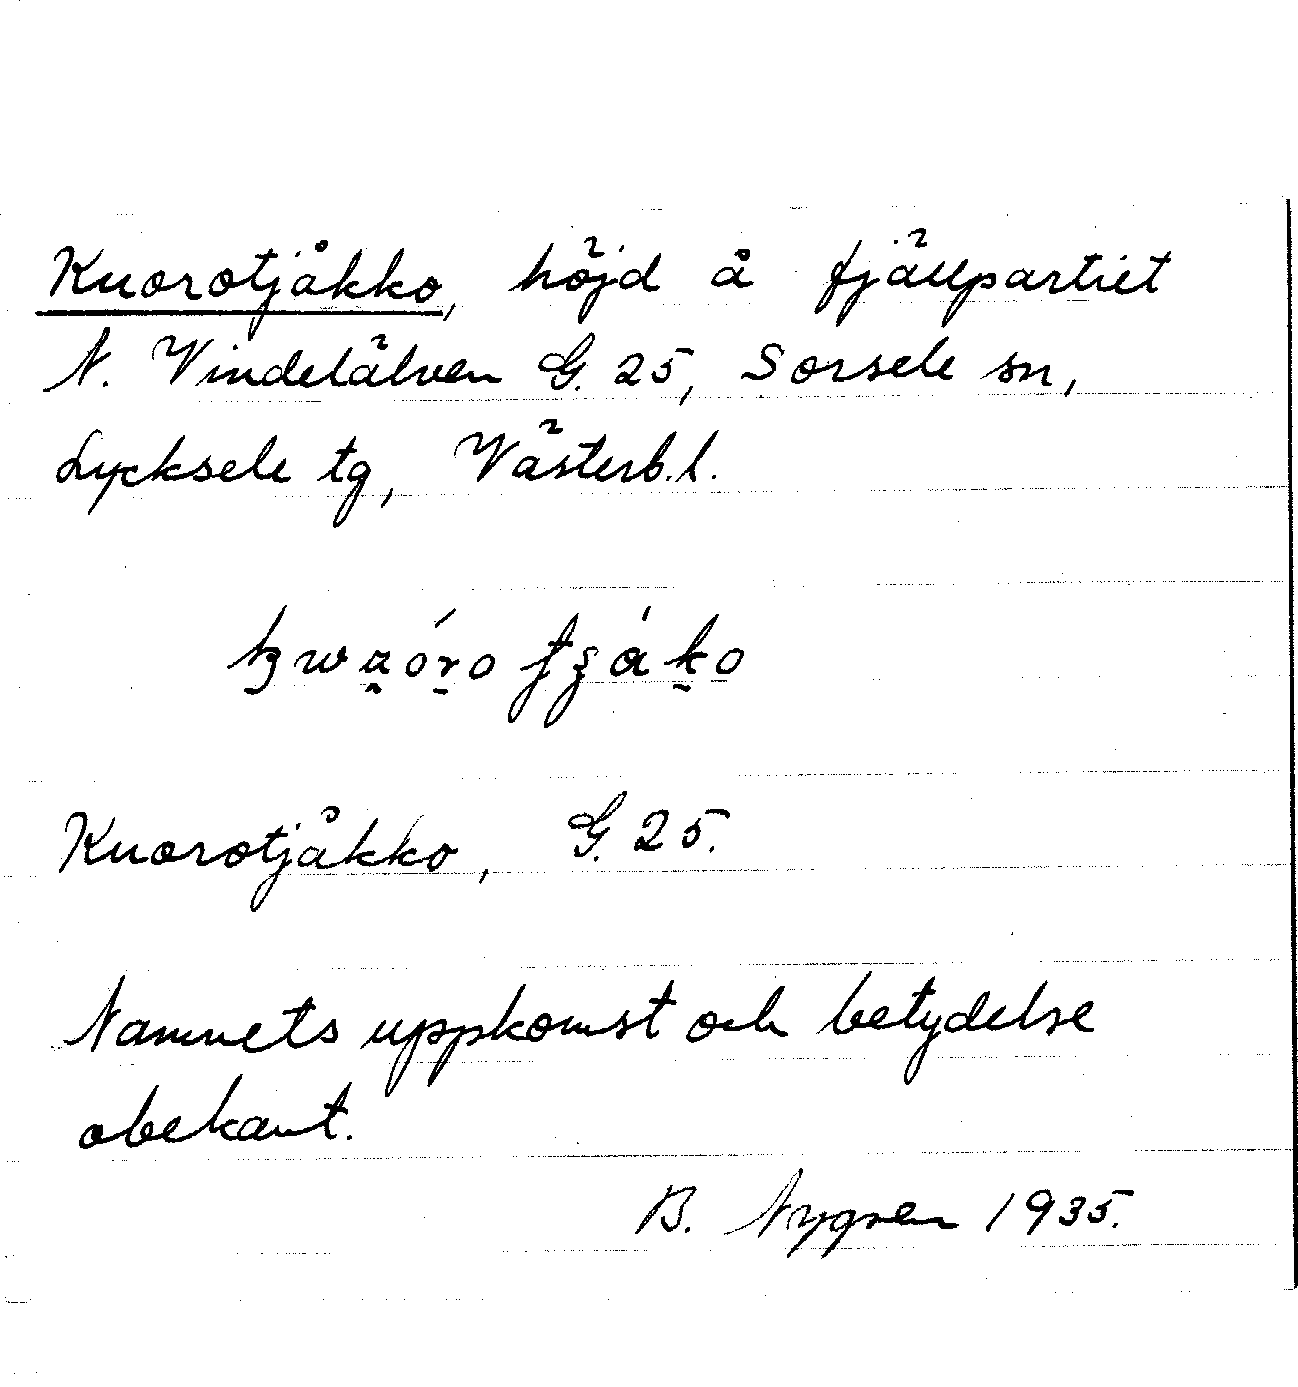 Kuorotjåkko, höjd å fjällpartiet
N. Vindelälven G. 25, Sorsele sn,
Lycksele tg, Västerb. l.
Kuorotjåkko, G. 25.
Namnets uppkomst och betydelse
obekant.
B. Nygren 1935.